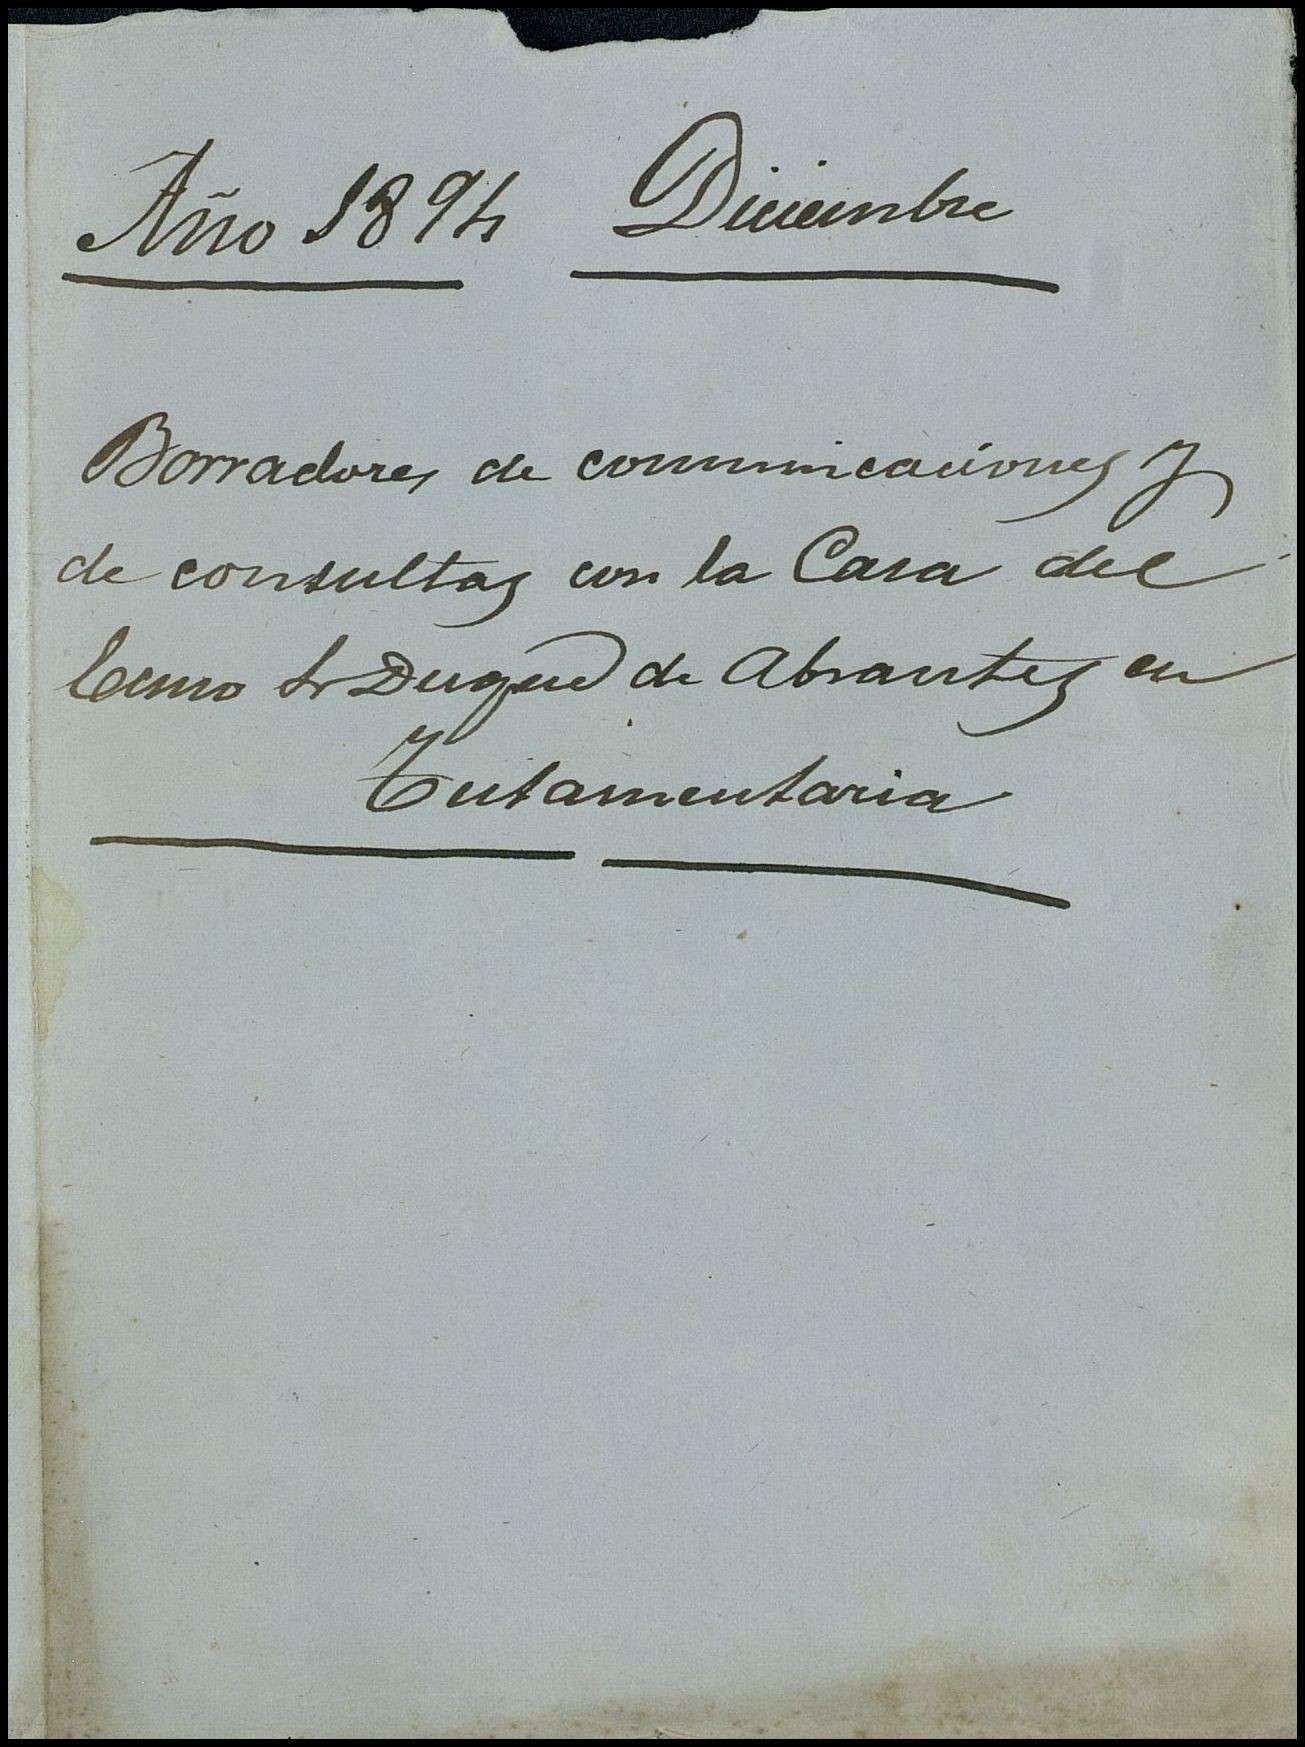 Año 1894 Diciembre
Borradores de comunicaciones y
de consultas con la Casa del
Exmo Sr Duque de Abrantes en
Testamentaria